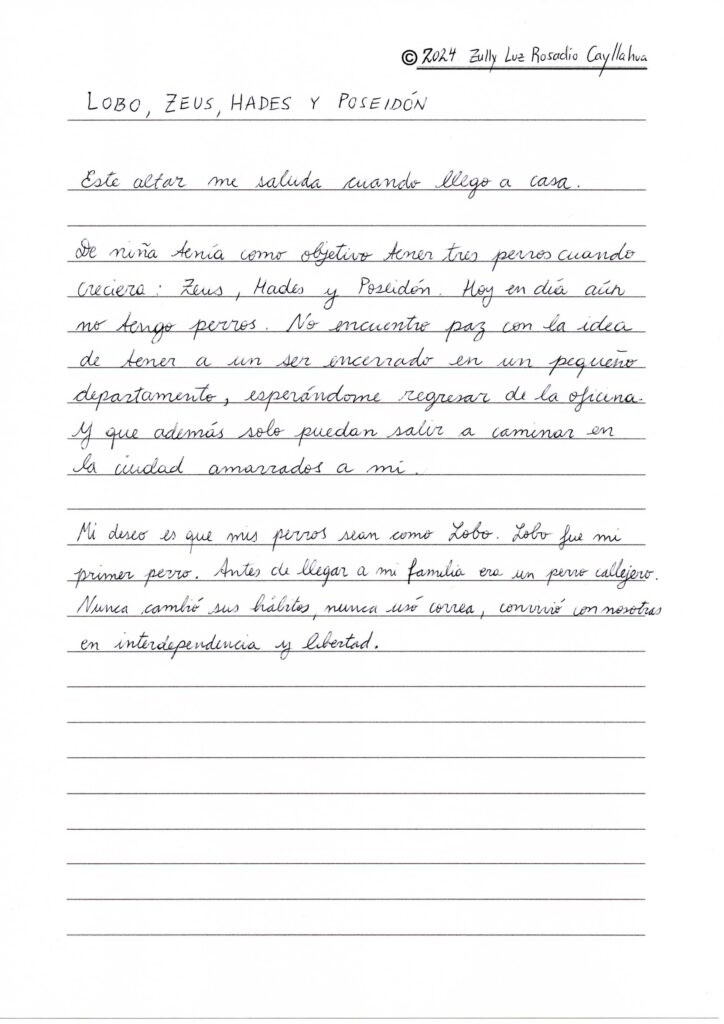 © 2024 Zully Luz Rosadio Cayllahua
LOBO, ZEUS, HADES Y POSEIDÓN
Este altar me saluda cuando llego a casa.
De niña tenía como objetivo tener tres perros cuando
creciera: Zeus, Hades y Poseidón. Hoy en día aún
no tengo perros. No encuentro paz con la idea
de tener a un ser encerrado en un pequeño
departamento, esperándome regresar de la oficina.
Y que además solo puedan salir a caminar en
la ciudad amarrados a mi.
Mi deseo es que mis perros sean como Lobo. Lobo fue mi
primer perro. Antes de llegar a mi familia era un perro callejero.
Nunca cambió sus hábitos, nunca usó correa, convivió con nosotras
en interdependencia y libertad.